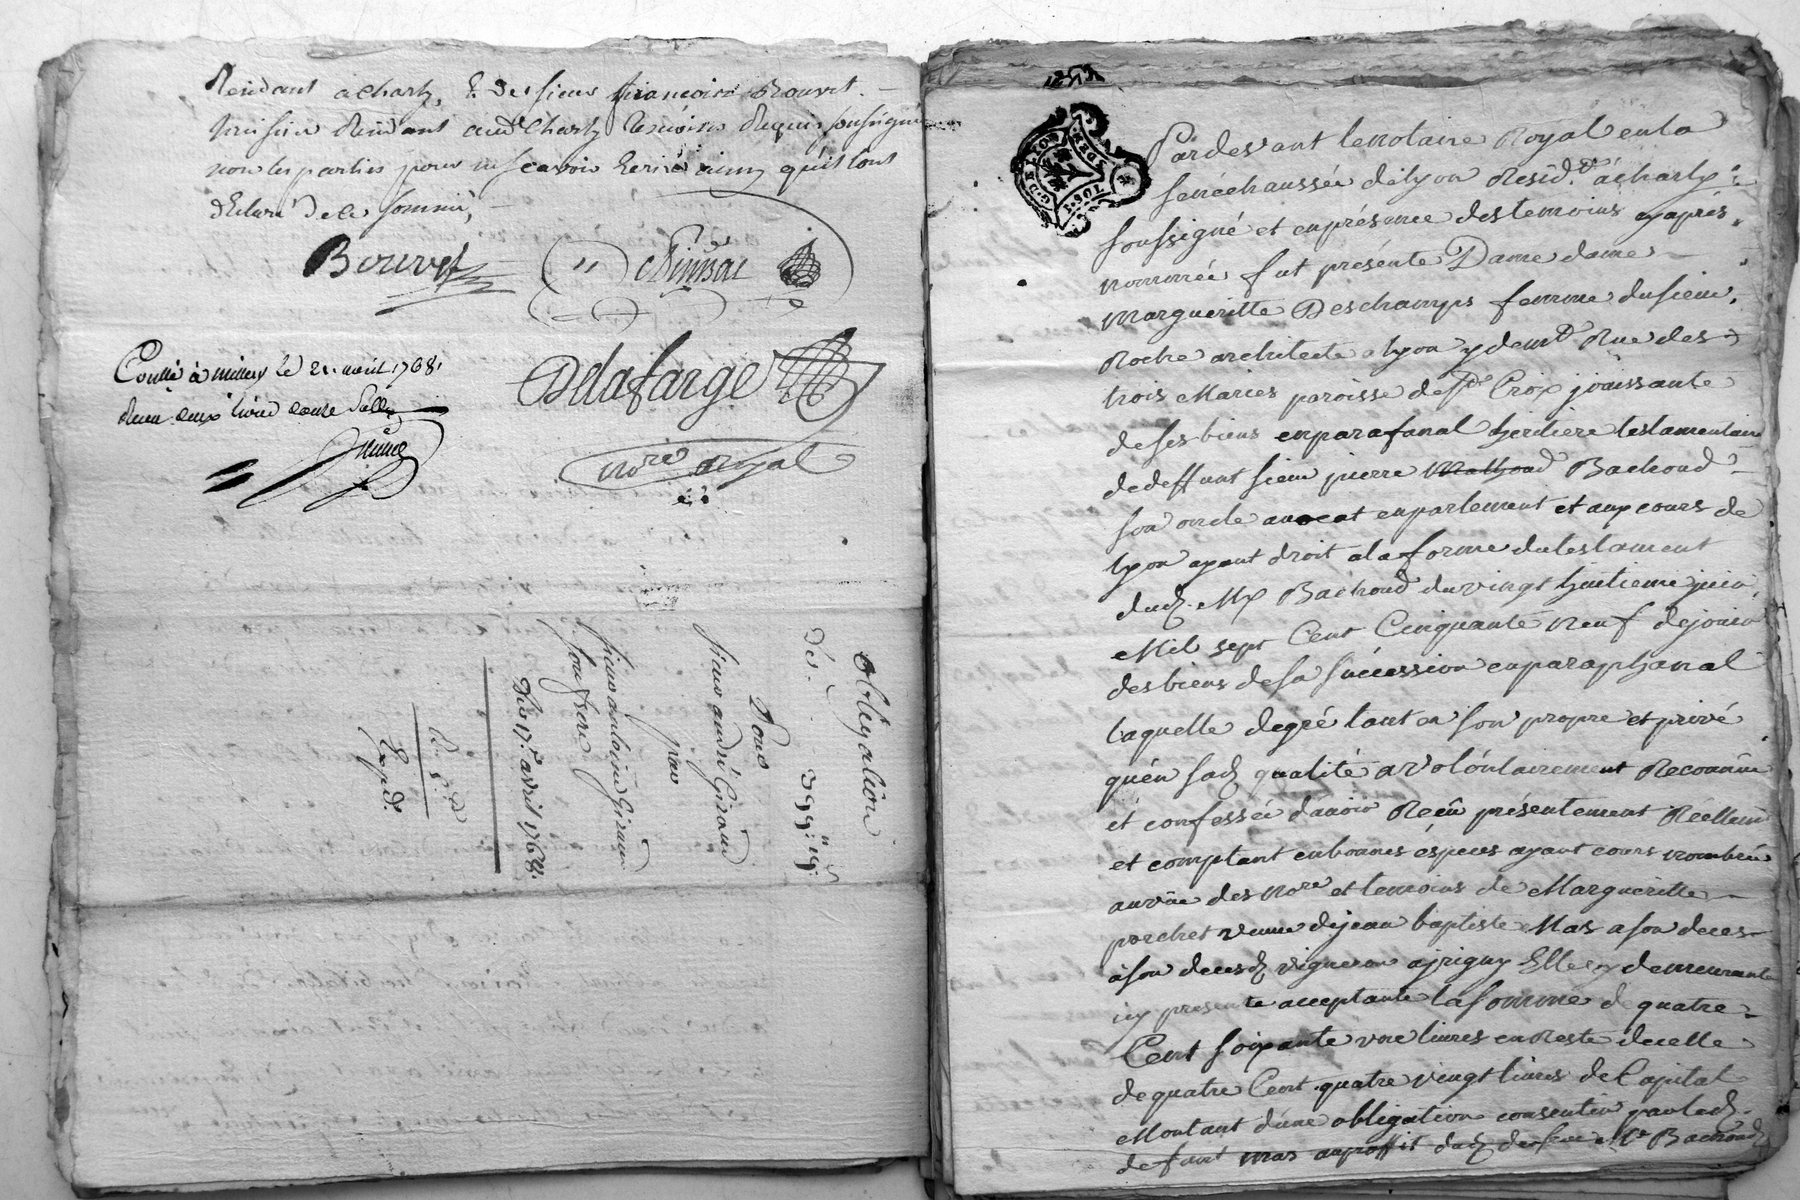 Résidant à charly, & de sieur françois Bouvet
résidant aud. Charly temoins requis soussignés
non les parties pour ne scavoir Ecrire ainsy qu'ils ont
déclaré de ce sommé,
Bouvet
Delafarge
nore royal
Conllé à millery le 21 avril 1768
Reçu deux livres douze sols
Obligation
De 399ll 19s
Pour
sieur andré Giraud
par
sieur antoine Giraud
son frere
Du 17e avril 1768.
Expde
Pardevant le notaire Royal en la
senéchaussée de lyon Résidt à charly
soussigné et en présence des temoins cy après
nommée fut présente Dame dame
Margueritte Deschamps femme du sieur
Roche architecte a lyon y demt Rue des
trois Maries paroisse de Ste Croix jouissante
de ses biens en parafanal héritiere testamentaire
de deffunt sieur pierre Bachoud
son oncle avocat en parlement et aux cours de
lyon ayant droit a la forme du testament
dud. Me Bachoud du vingt huitieme juin
Mil sept Cent Cinquante neuf de jouir
des biens de sa succession en paraphanal
laquelle de gré tant en son propre et privé
qu'en sad. qualité a volontairement Reconnu
et confessée d'avoir Reçû présentement Réellemt
et comptant en bonnes éspeces ayant cours nombrée
au vûe des nore et temoins de Margueritte
porchet veuve de jean baptiste Mas a son deces
à son decesd. vigneron a jrigny Elle y demeurante
icy presente acceptante la somme de quatre
Cent soixante une livres en Reste de celle
de quatre Cent quatre vingt livres de Capital
Montant d'une obligation consentie par led.
defunt mas au proffit dud. defunt Me Bachoud